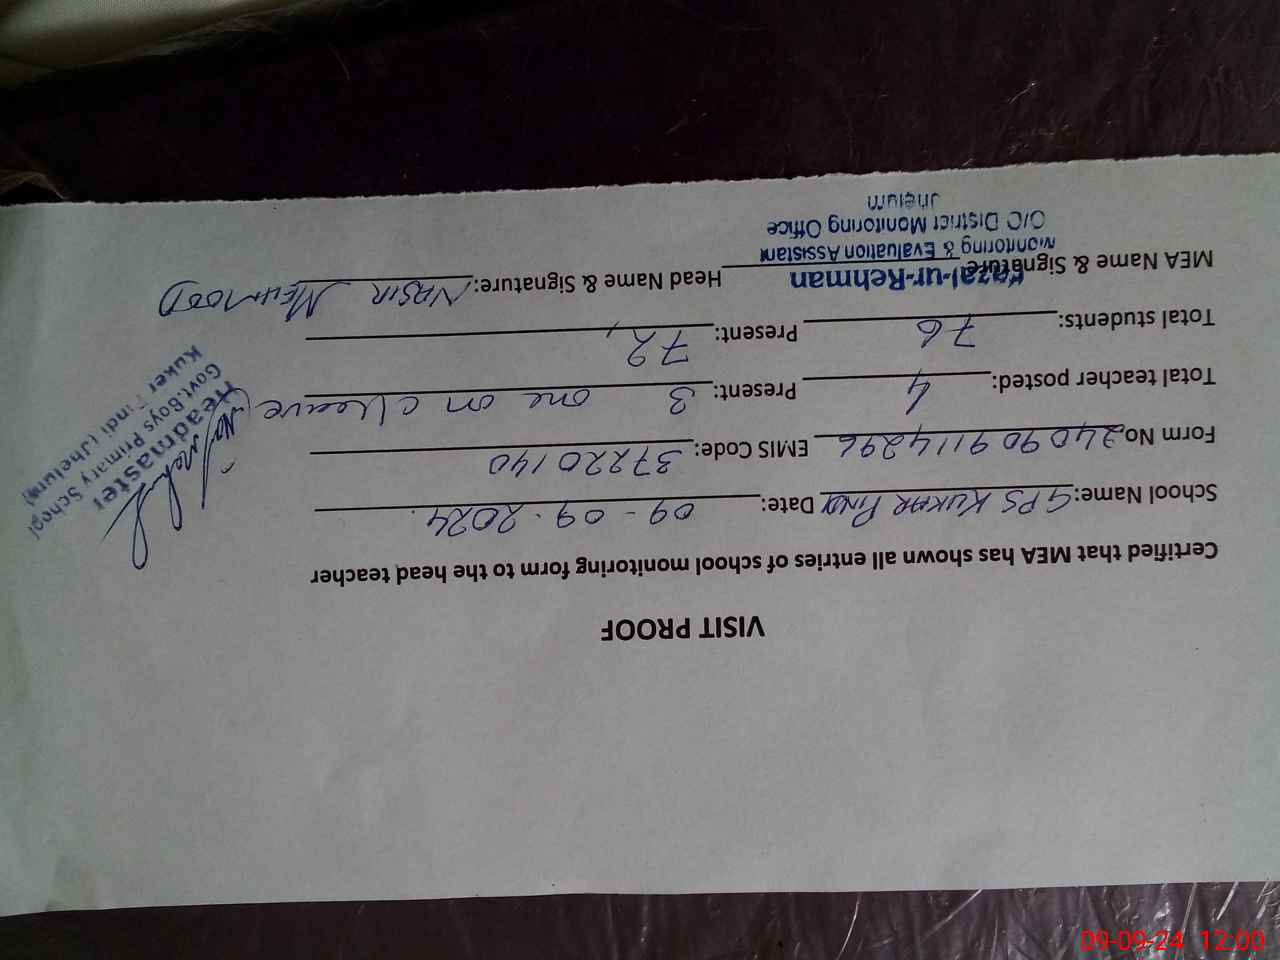 VISIT PROOF
Certified that MEA has shown all entries of school monitoring form to the head teacher
School Name: GPS KUKAR PINDI Date: 09-09-2024.
Form No. 240909114296 EMIS Code: 37220140
Total teacher posted: 4 Present: 3 one on c/leave
Total students: 76 Present: 72
MEA Name & Signature Fazal-ur-Rehman Head Name & Signature: NASIR MEHMOOD
Monitoring & Evaluation Assistant
O/O District Monitoring Office
Jhelum
Headmaster
Govt. Boys Primary School
Kuker Pindi (Jhelum)
09-09-24 12:00